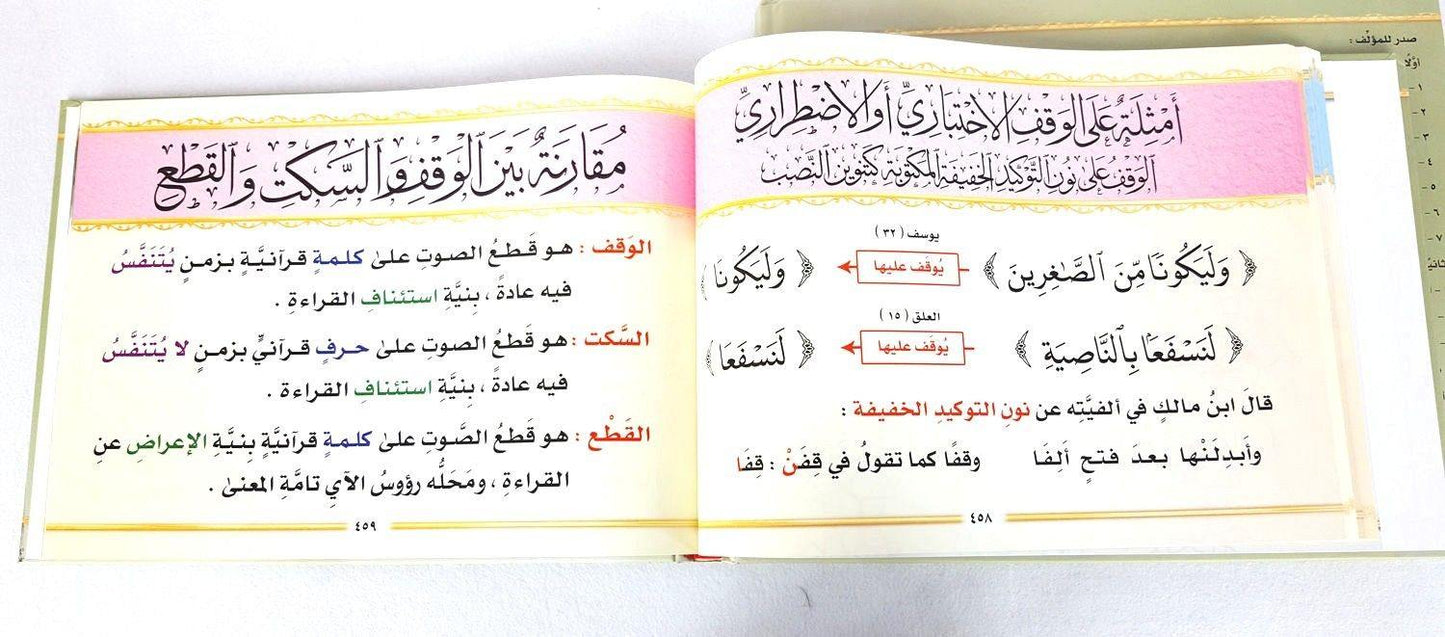 أَمْثِلَةٌ عَلَى الوَقْفِ الاخْتِبَارِيِّ أَوِ الاضْطِرَارِيِّ
الوَقْفُ عَلَى نُونِ التَّوْكِيدِ الخَفِيفَةِ المَكْتُوبَةِ كَتَنْوِينِ النَّصْبِ
يوسف ( ٣٢ )
﴿ وَلَيَكُونًا مِّنَ ٱلصَّٰغِرِينَ ﴾ يُوقَف عليها ﴿ وَلَيَكُونَا ﴾
العلق ( ١٥ )
﴿ لَنَسْفَعًۢا بِٱلنَّاصِيَةِ ﴾ يُوقَف عليها ﴿ لَنَسْفَعَا ﴾
قالَ ابنُ مالكٍ في ألفيَّتِه عن نونِ التوكيدِ الخفيفة :
وأَبدِلَنْها بعدَ فتحٍ ألِفَا وقفًا كما تقولُ في قِفَنْ : قِفَا
٤٥٨
مُقَارَنَةٌ بَيْنَ ٱلْوَقْفِ وَٱلسَّكْتِ وَٱلْقَطْعِ
الوَقف : هو قَطعُ الصوتِ علىٰ كلمةٍ قرآنيَّةٍ بزمنٍ يُتَنَفَّسُ
فيه عادةً ، بِنيَّةِ استئنافِ القراءةِ .
السَّكت : هو قَطعُ الصوتِ علىٰ حرفٍ قرآنيٍّ بزمنٍ لا يُتَنَفَّسُ
فيه عادةً ، بِنِيَّةِ استئنافِ القراءة .
القَطْع : هو قَطعُ الصَّوتِ علىٰ كلمةٍ قرآنيَّةٍ بِنيَّةِ الإعراضِ عنِ
القراءةِ ، ومَحَلُّه رؤوسُ الآيِ تامَّةِ المعنىٰ .
٤٥٩
صدر للمؤلّف :
أوّلًا
١ -
٢ -
٣ -
٤ -
٥ -
٦ -
٧ -